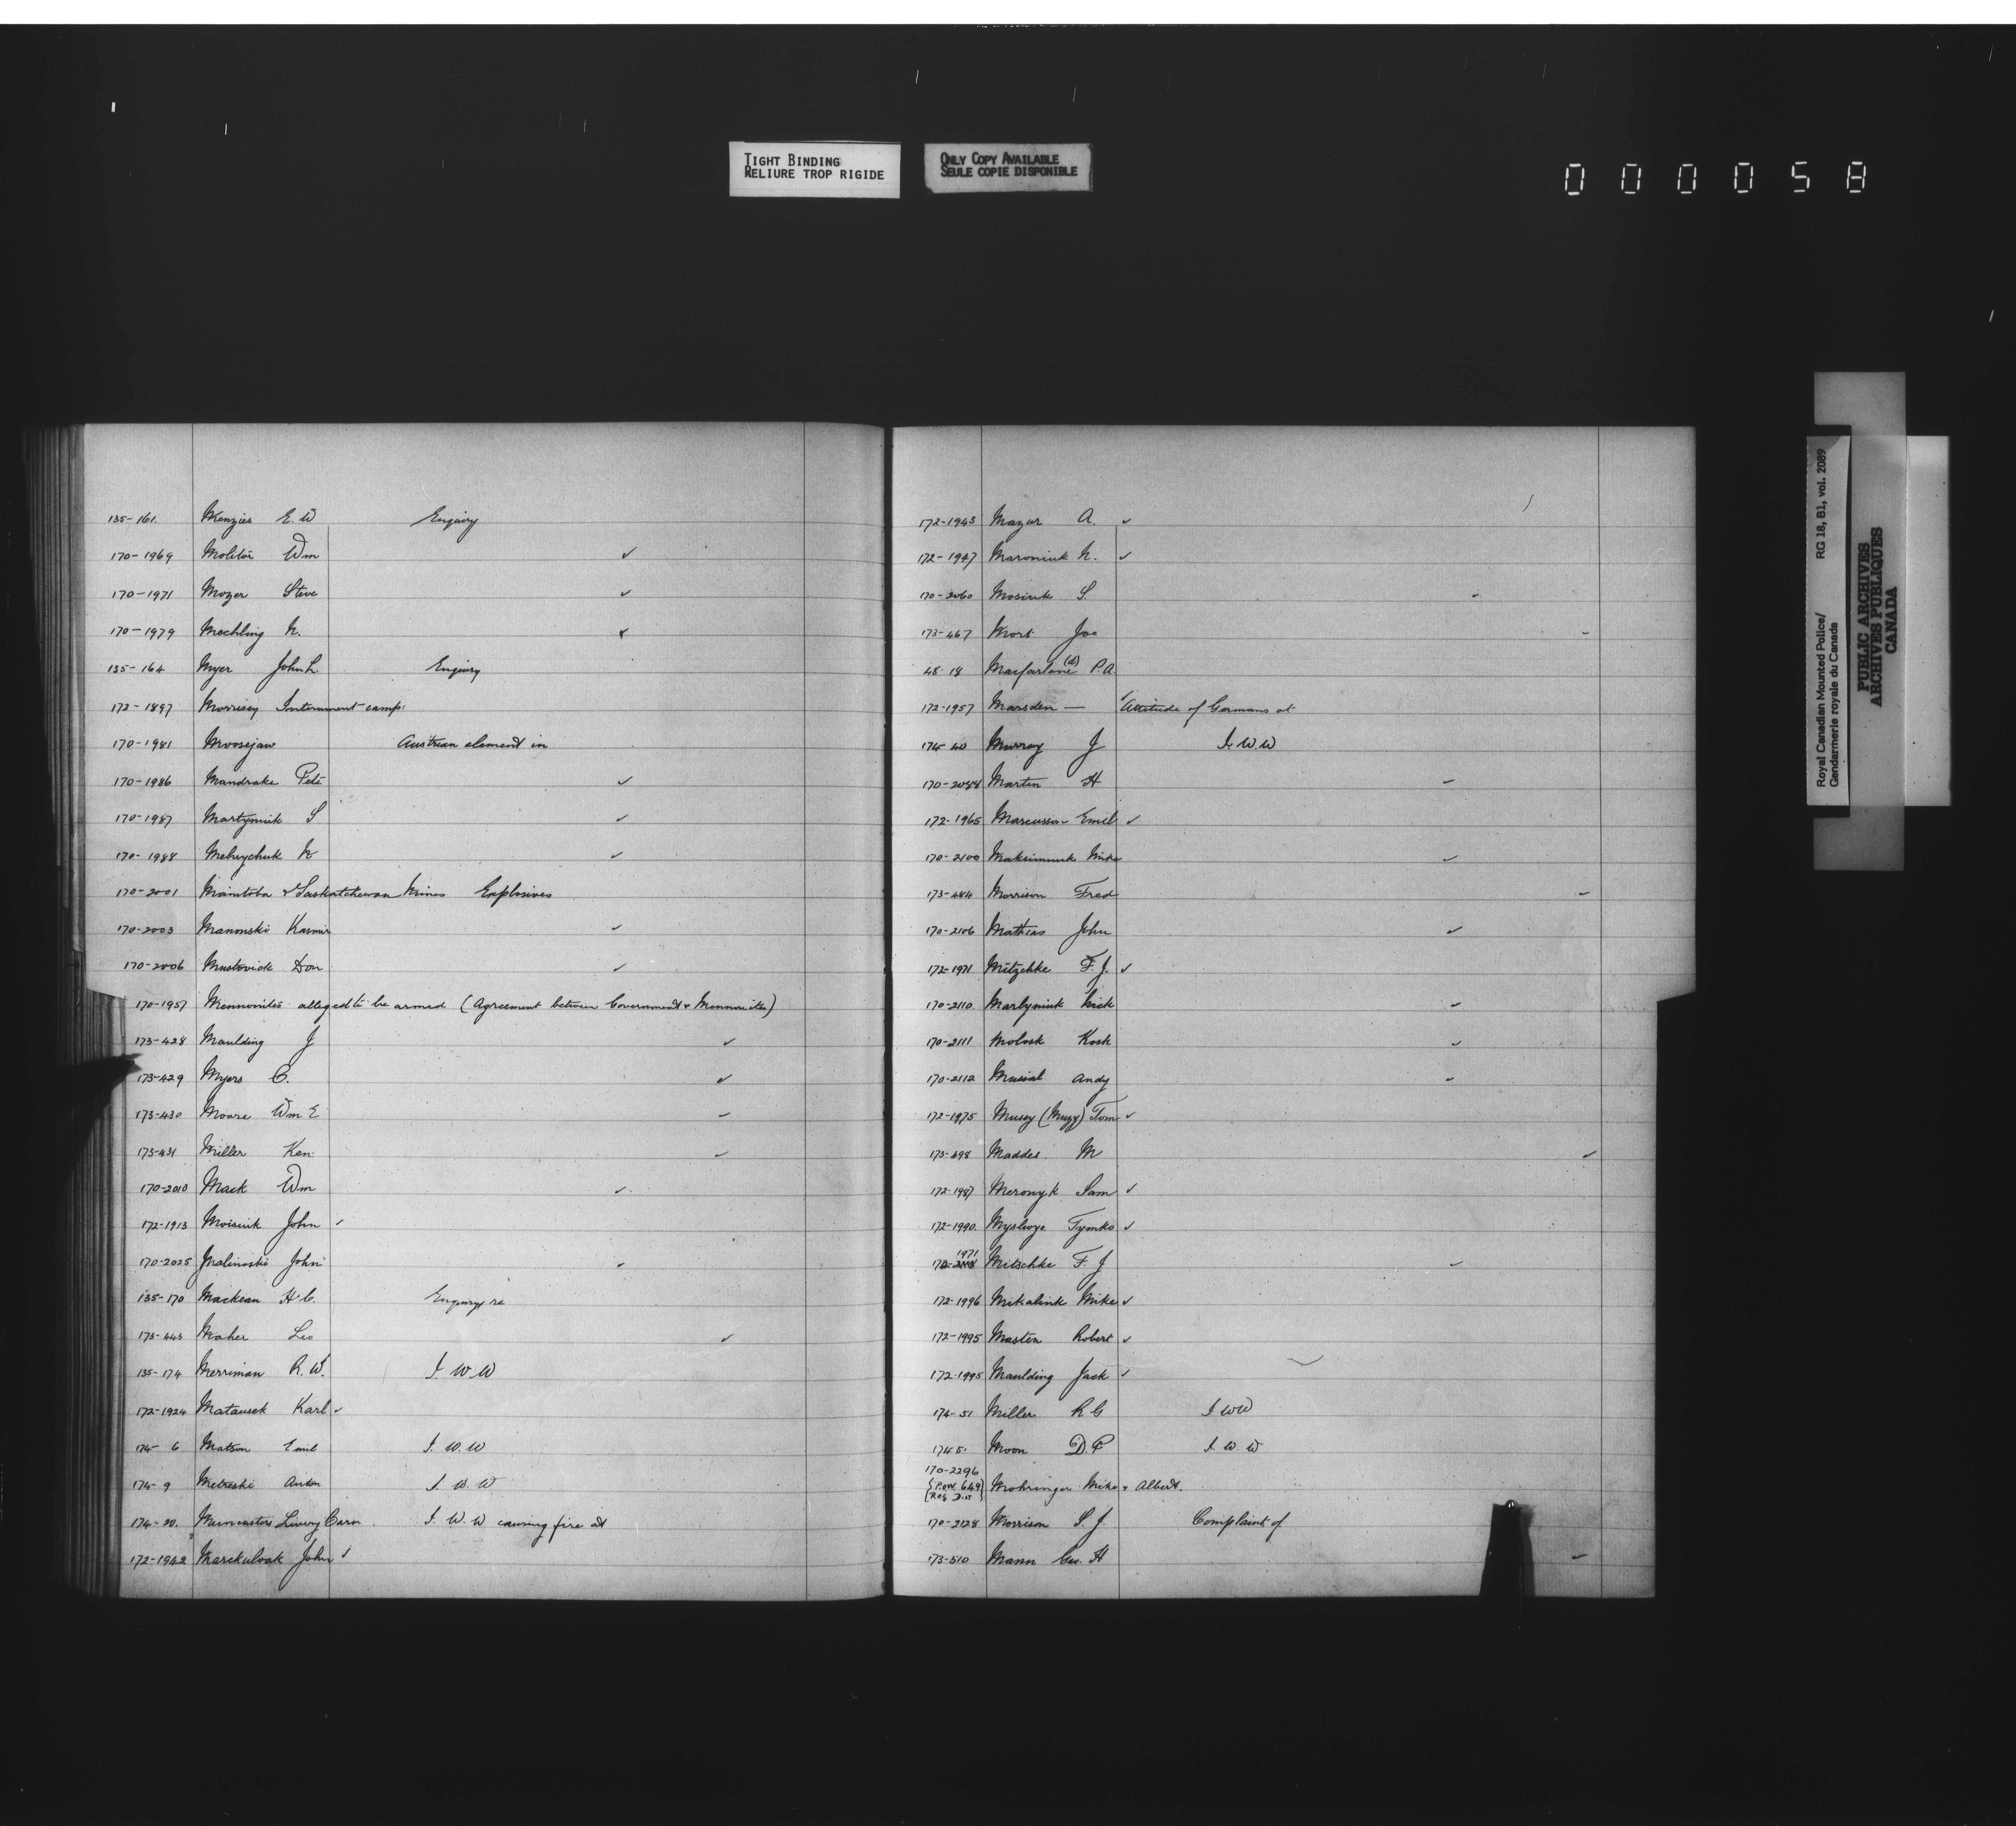 TIGHT BINDING
RELIURE TROP RIGIDE
ONLY COPY AVAILABLE
SEULE COPIE DISPONIBLE
000058
135-161. Menzies E. W Enquiry
170-1969 Molitor Wm ✓
170-1971 Mozer Steve ✓
170-1979 Mechling N. ✓
135-164 Myer John L Enquiry
172-1897 Morrisey Internment camp.
170-1981 Moosejaw Austrian element in
170-1986 Mandrake Pete ✓
170-1987 Martyniuk S ✓
170-1988 Melnychuk N ✓
170-2001 Manitoba & Saskatchewan Mines Explosives
170-2003 Manonski Kasmir ✓
170-2006 Mustovick Don ✓
170-1957 Mennonites alleged to be armed (Agreement between Government & Mennonites)
173-428 Maulding J ✓
173-429 Myers C. ✓
173-430 Moore Wm E ✓
173-431 Miller Ken ✓
170-2010 Mack Wm ✓
172-1913 Moisiuk John ✓
170-2025 Malinoski John ✓
135-170 Mackean H. C. Enquiry re
173-443 Maher Leo ✓
135-174 Merriman R. W. I. W. W
172-1924 Matausek Karl ✓
174-6 Matson Emil I. W. W
174-9 Metreski Anton I. W. W
174-20. Muncasters Livery Barn I. W. W causing fire at
172-1942 Marckuloak John ✓
172-1943 Mazur A. ✓
172-1947 Maroniuk N. ✓
170-2060 Mosiuk S. ✓
173-467 Mort Joe
48-18 Macfarlane (d) P. A.
172-1957 Marsden — Attitude of Germans at
174-40 Murray J I. W. W
170-2084 Martin H ✓
172-1965 Marcussen Emil ✓
170-2100 Maksimuk Mike ✓
173-484 Morrison Fred ✓
170-2106 Mathias John ✓
172-1971 Mitzchke F. J. ✓
170-2110. Martyniuk Nick ✓
170-2111 Molosk Kosk ✓
170-2112 Musial Andy ✓
172-1975 Musey (Muzy) Tom ✓
173-498 Maddes M ✓
172-1987 Meronyk Sam ✓
172-1990. Myslwye Tymko ✓
1971
Mitschke F. J ✓
172-1996 Mikalink Mike ✓
172-1995 Masten Robert ✓
172-1995 Maulding Jack ✓
174-51 Miller R G I W W
174 51 Moon D. P I. W. W
170-2296
{P.O.W. 649} Mohringer Mike & Albert.
[Reg Dist]
170-2128 Morrison S. J. Complaint of
173-510 Mann Geo. H ✓
Royal Canadian Mounted Police/ RG 18, B1, vol. 2089
Gendarmerie royale du Canada
PUBLIC ARCHIVES
ARCHIVES PUBLIQUES
CANADA